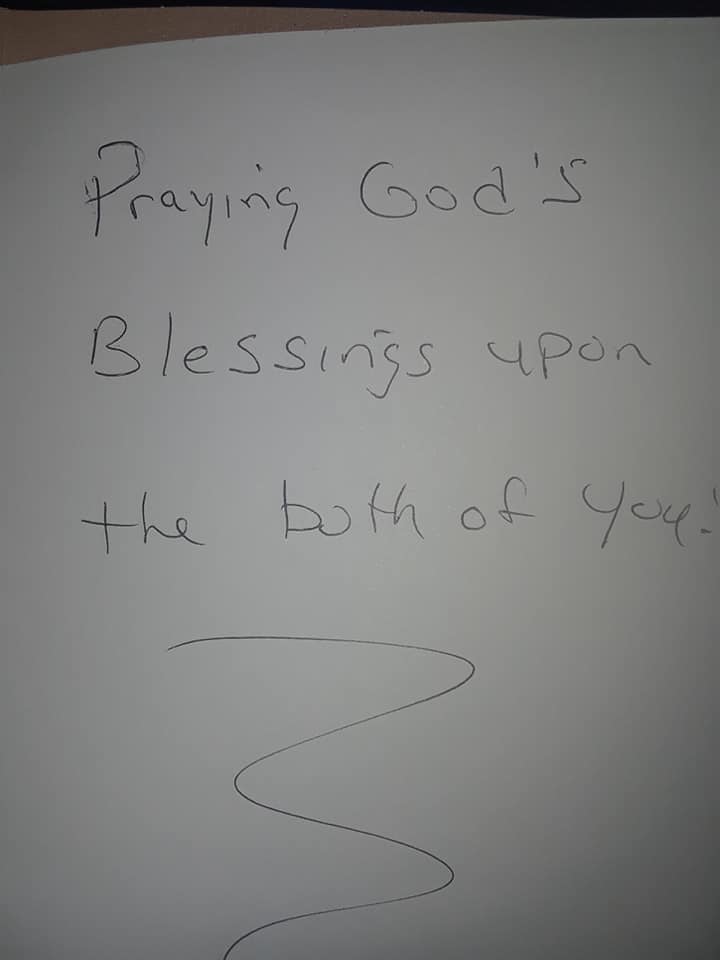 Praying God's
Blessings upon
the both of you!